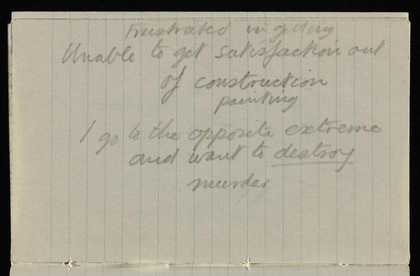 frustrated in getting
Unable to get satisfaction out
of construction
painting
I go to the opposite extreme
and want to destroy
murder